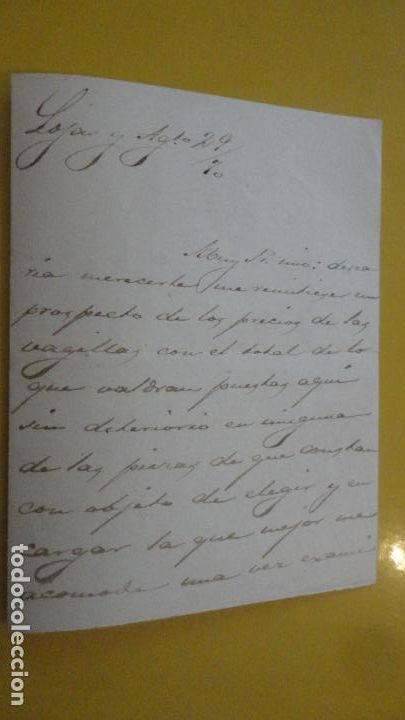 Loja y Agto 29
/70
Muy Sr. mio: desea
ria merecerle me remitiese un
prospecto de los precios de las
vagillas con el total de lo
que valdran puestas aqui
sin deteriorio en ninguna
de las piezas de que constan
con objeto de elegir y en
cargar la que mejor me
acomode una vez exami
todocoleccion.net